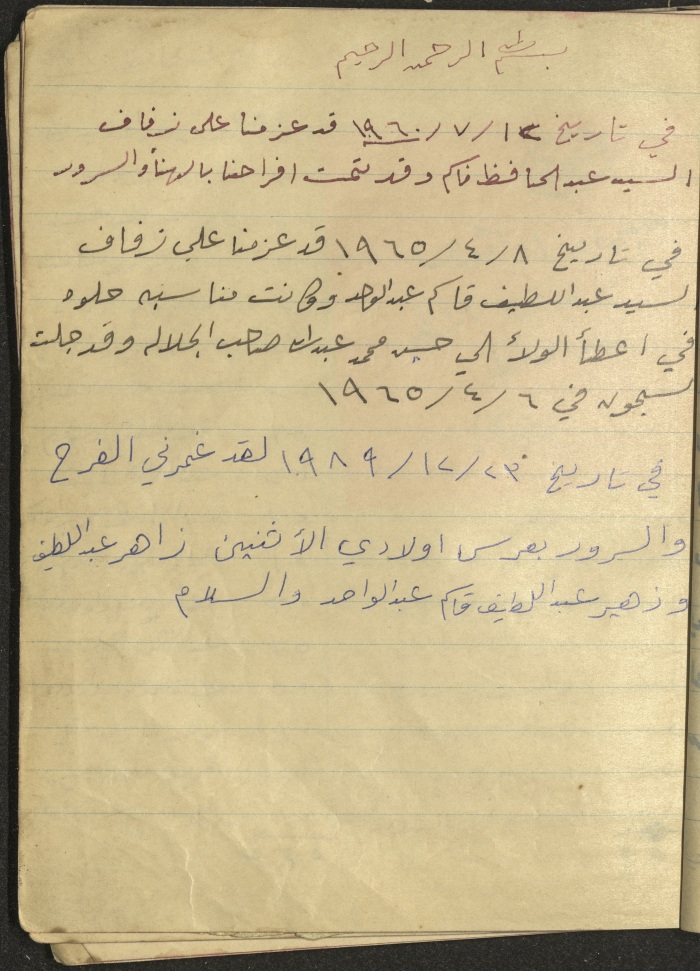 بسم الله الرحمن الرحيم
في تاريخ ١٢/٧/١٩٦٠ قد عزمنا على زفاف
السيد عبد الحافظ قاسم وقد تمت افراحنا بالهنأ والسرور
في تاريخ ٨/٤/١٩٦٥ قد عزمنا علي زفاف
لسيد عبد اللطيف قاسم عبد الواحد وكانت مناسبه حلوه
في اعطأ الولأ الي حسين محمد عبدالله صاحب الجلاله وقد جلت
لسجون في ٦/٤/١٩٦٥
في تاريخ ٢٣/١٢/١٩٨٩ لقد غمرني الفرح
والسرور بعرس اولادي الأثنين زاهر عبد اللطيف
وزهير عبد اللطيف قاسم عبد الواحد والسلام